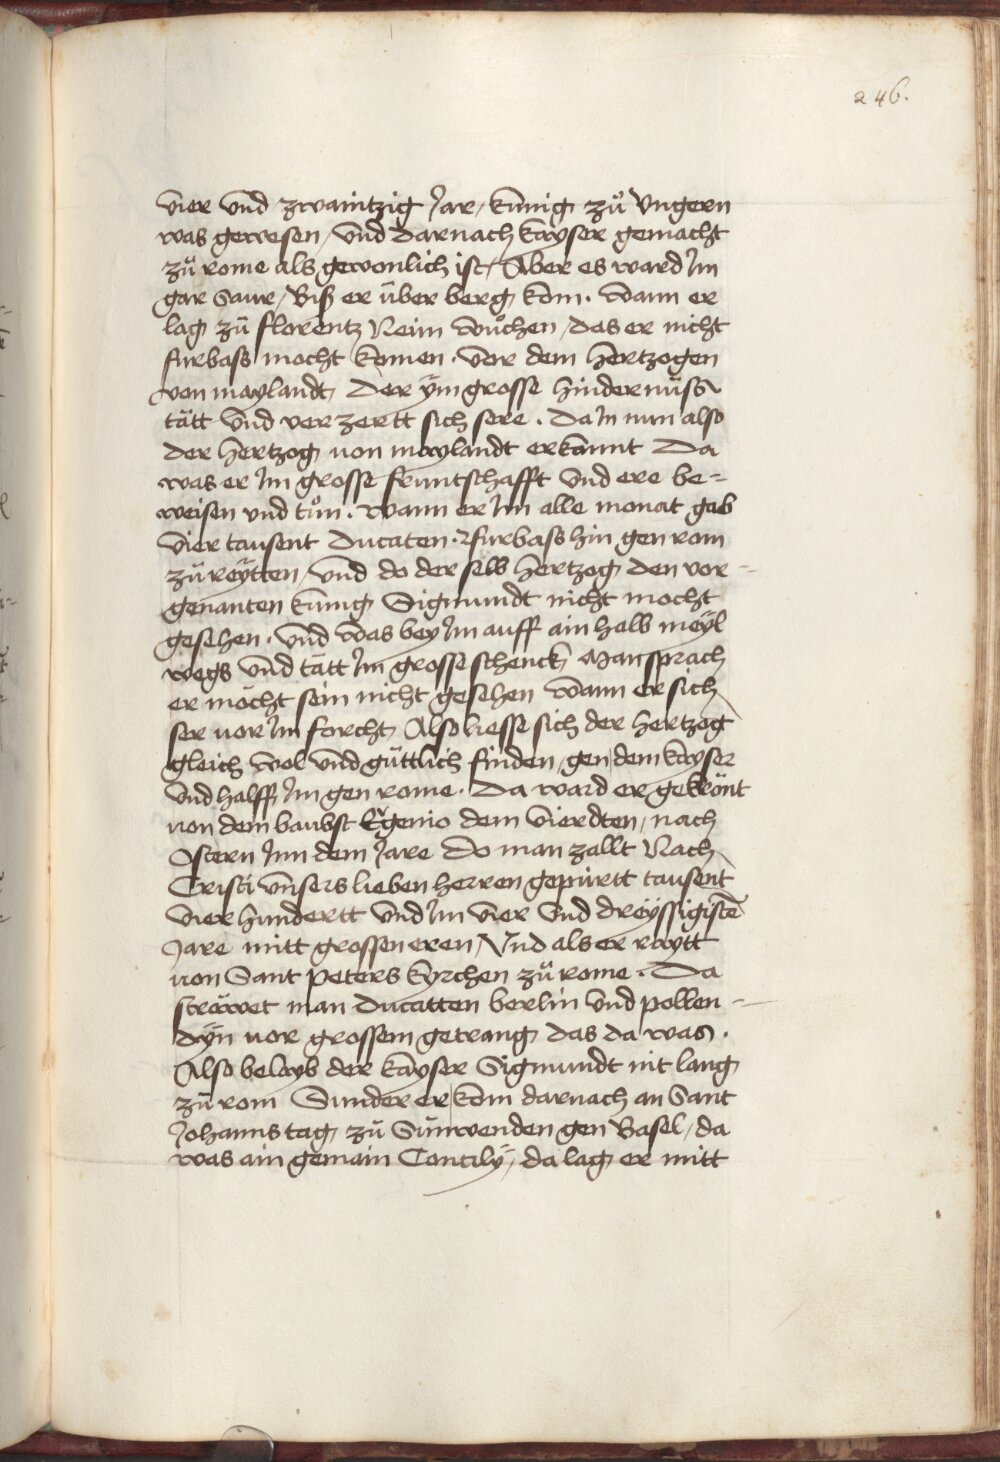 246.
vier vnd zwaintzig Jar / kunig zů Vngern
was gewesen / vnd darnach kayser gemacht
zů rome als gewonlich ist / Aber es ward Im
gar Saur / Biß er über berg kom . wann er
lag zů florentz Neun wůchen / das er nicht
furbass mocht komen . vor dem hertzogen
von maylandt / Der ÿm grosse hindernüss
tätt vnd verzertt sich sere . Da In nun also
der hertzog von maylandt erkannt Da
was er Im grosse fruntschafft vnd ere be-
weisen vnd tůn . wann er Im alle monat gab
vier tausent Ducaten . furbass hin gen rom
zů reÿtten / vnd do der selb hertzog den vor-
genanten kunig Sigmundt nicht mocht
gesehen . vnd was bey Im auff ain halb meÿl
wegs vnd tätt Im grosse schenck Man sprach
er möcht sein nicht gesehen wann er sich
ser vor Im forcht / Also liesse sich der hertzog
gleich wol vnd güttlich finden / gen dem kayser
vnd halff Im gen rome . Da ward er gekrönt
von dem baubst Eÿgenio dem vierdten / nach
Ostern Inn dem Jare do man zallt Nach
Cristi vnsers lieben herren gepurtt tausent
vier hundertt vnd Im vier vnd dreyssigistē
Jare mitt grossen eren / Vnd als er raytt
von Sant peters kyrchen zů rome . Da
sträwet man ducatten berlin vnd pollen-
dÿn vor grossem getrang das da was .
Also belayb der kayser Sigmundt nit lang
zů rom Sunder er kom darnach an Sant
Johanns tag zů Sunwenden gen Basel / da
was ain gemain Concilÿ / da lag er mitt